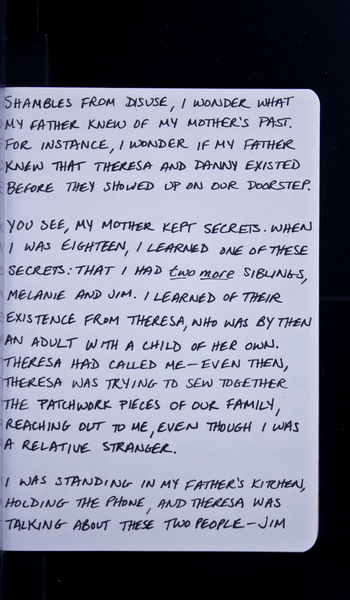 SHAMBLES FROM DISUSE, I WONDER WHAT
MY FATHER KNEW OF MY MOTHER'S PAST.
FOR INSTANCE, I WONDER IF MY FATHER
KNEW THAT THERESA AND DANNY EXISTED
BEFORE THEY SHOWED UP ON OUR DOORSTEP.
YOU SEE, MY MOTHER KEPT SECRETS. WHEN
I WAS EIGHTEEN, I LEARNED ONE OF THESE
SECRETS: THAT I HAD two more SIBLINGS,
MELANIE AND JIM. I LEARNED OF THEIR
EXISTENCE FROM THERESA, WHO WAS BY THEN
AN ADULT WITH A CHILD OF HER OWN.
THERESA HAD CALLED ME—EVEN THEN,
THERESA WAS TRYING TO SEW TOGETHER
THE PATCHWORK PIECES OF OUR FAMILY,
REACHING OUT TO ME, EVEN THOUGH I WAS
A RELATIVE STRANGER.
I WAS STANDING IN MY FATHER'S KITCHEN,
HOLDING THE PHONE, AND THERESA WAS
TALKING ABOUT THESE TWO PEOPLE—JIM